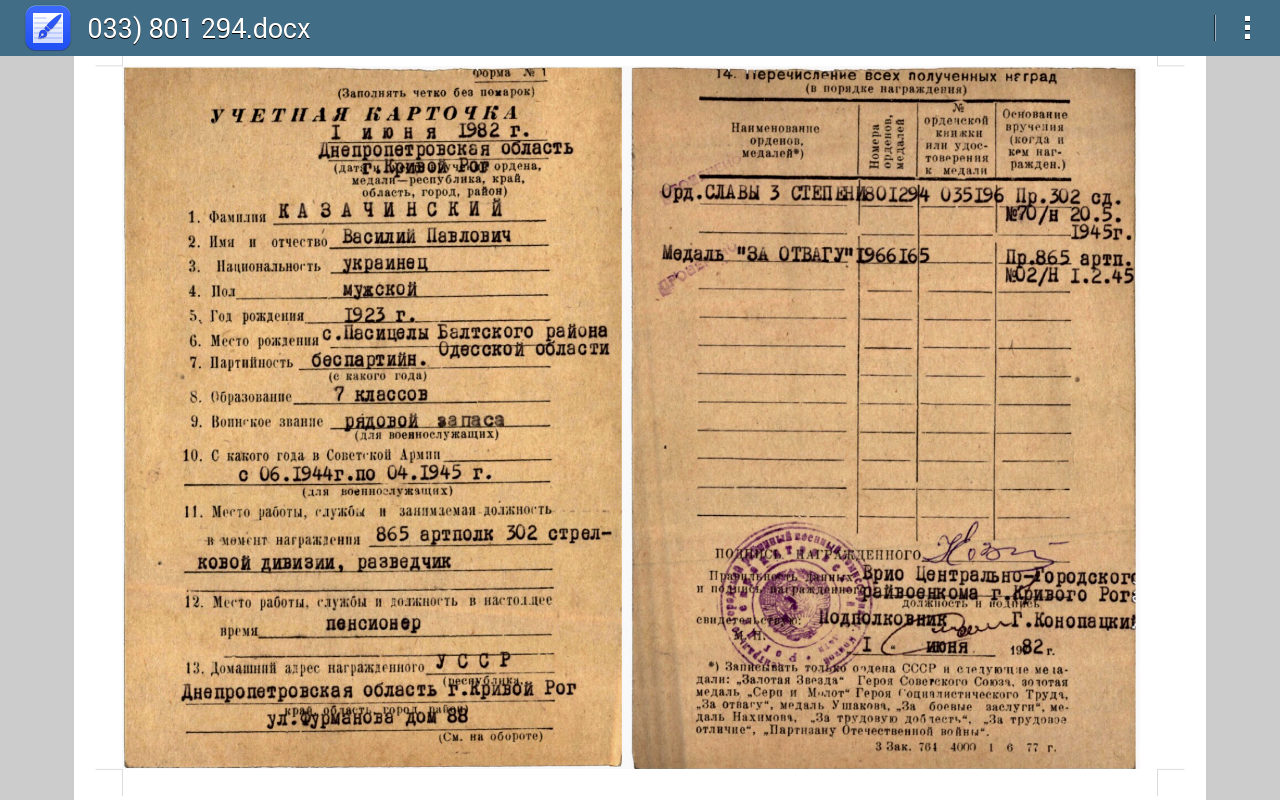 033) 801 294.docx
Форма № 1
(Заполнять четко без помарок)
УЧЕТНАЯ КАРТОЧКА
I июня 1982 г.
Днепропетровская область
г.Кривой Рог
ордена,
медали—республика, край,
область, город, район)
1. Фамилия КАЗАЧИНСКИЙ
2. Имя и отчество Василий Павлович
3. Национальность украинец
4. Пол мужской
5. Год рождения 1923 г.
6. Место рождения с.Пасицелы Балтского района
Одесской области
7. Партийность беспартийн.
(с какого года)
8. Образование 7 классов
9. Воинское звание рядовой запаса
(для военнослужащих)
10. С какого года в Советской Армии
с 06.1944г.по 04.1945 г.
(для военнослужащих)
11. Место работы, службы и занимаемая должность
в момент награждения 865 артполк 302 стрел-
ковой дивизии, разведчик
12. Место работы, службы и должность в настоящее
время пенсионер
13. Домашний адрес награжденного УССР
(республика,
Днепропетровская область г.Кривой Рог
край, область, город, район)
ул.Фурманова дом 88
(См. на обороте)
14. Перечисление всех полученных наград
(в порядке награждения)
Наименование
орденов,
медалей*)
Номера
орденов,
медалей
№
орденской
книжки
или удос-
товерения
к медали
Основание
вручения
(когда и
кем наг-
ражден.)
Орд.СЛАВЫ 3 СТЕПЕНИ 801294 035196 Пр.302 сд.
№70/н 20.5.
1945г.
Медаль "ЗА ОТВАГУ" 1966165 Пр.865 артп.
№02/Н I.2.45
ПОДПИСЬ НАГРАЖДЕННОГО
Правильность данных Врио Центрально-Городского
и подпись награжденного райвоенкома г.Кривого Рога
должность и подпись
свидетельствую: Подполковник Г.Конопацкий
М.П.
I июня 1982 г.
*) Записывать только ордена СССР и следующие меда-
дали: „Золотая Звезда" Героя Советского Союза, золотая
медаль „Серп и Молот" Героя Социалистического Труда,
„За отвагу", медаль Ушакова, „За боевые заслуги", ме-
даль Нахимова, „За трудовую доблесть", „За трудовое
отличие", „Партизану Отечественной войны".
3 Зак. 764 4000 1 6 77 г.